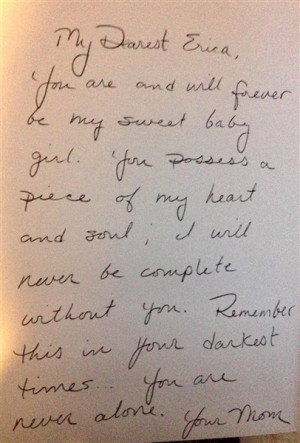 My Dearest Erica,
You are and will forever
be my sweet baby
girl. You possess a
piece of my heart
and soul; I will
never be complete
without you. Remember
this in your darkest
times... You are
never alone. Your Mom